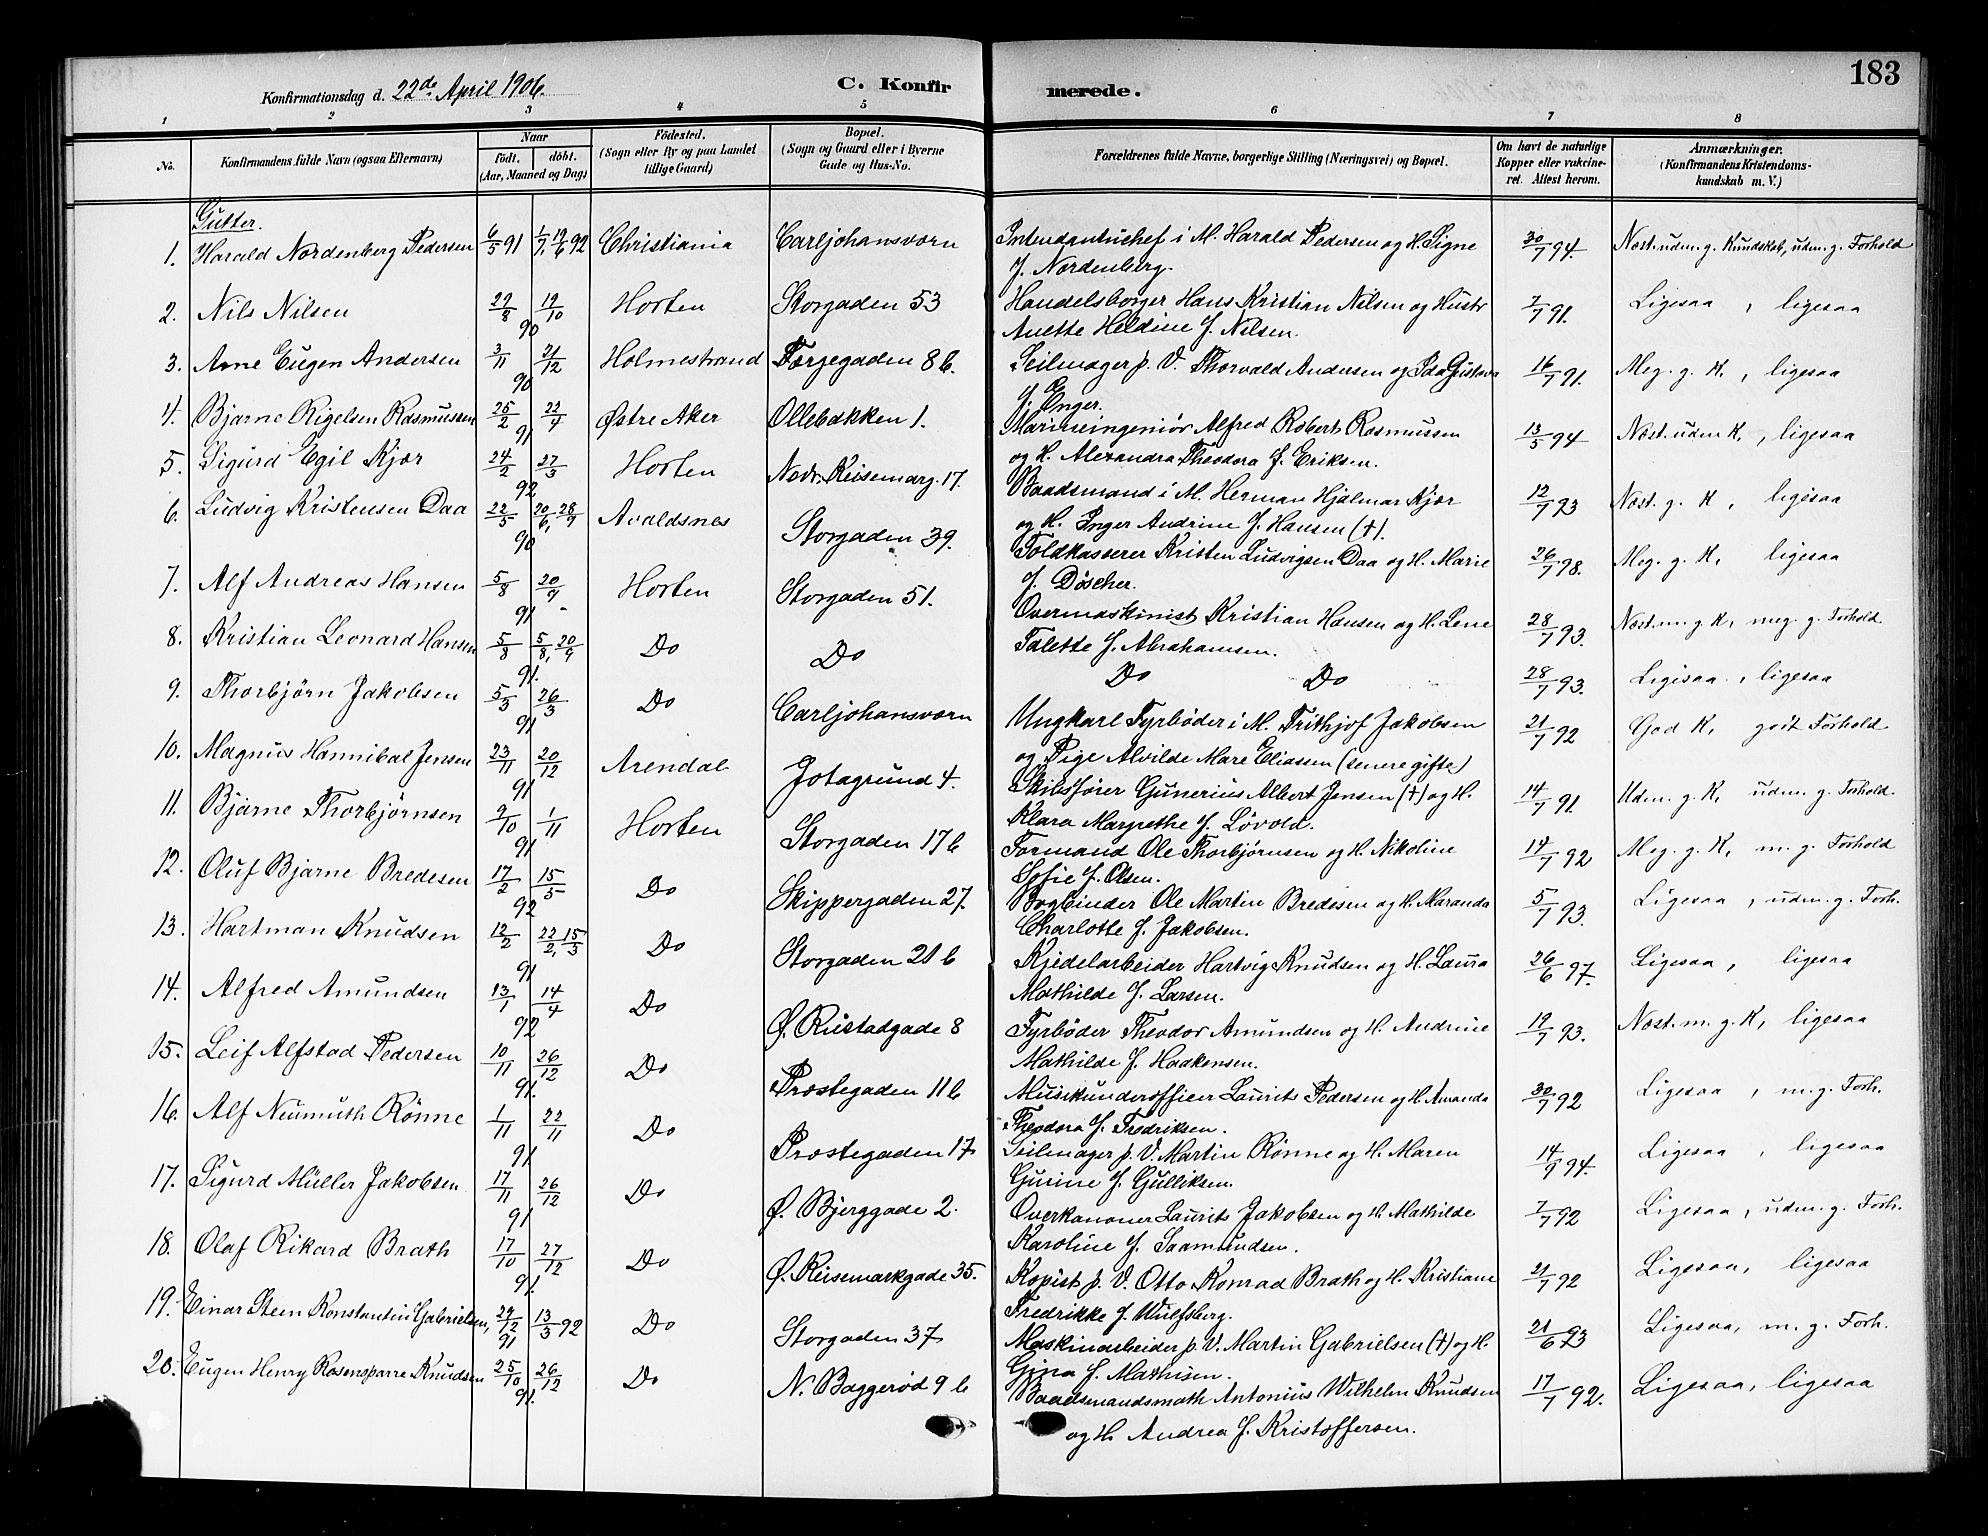 183
Konfirmationsdag d. 22de April 1906.
C. Konfir merede.
1 2 3 4 5 6 7 8
No. Konfirmandens fulde Navn (ogsaa Efternavn) Naar født. døbt. (Aar, Maaned og Dag) Fødested. (Sogn eller By og paa Landet tillige Gaard) Bopæl. (Sogn og Gaard eller i Byerne Gade og Hus-No. Forældrenes fulde Navne, borgerlige Stilling (Næringsvei) og Bopæl. Om havt de naturlige Kopper eller vakcineret. Attest herom. Anmærkninger. (Konfirmandens Kristendomskundskab m. V.)
Gutter.
1. Harald Nordenberg Pedersen 6/5 91 1/7, 19/6 92 Christiania Carljohansværn Intendantuchef i M. Harald Pedersen og H. Signe 30/7 94. Næst. udm. g. Kundskab, udm. g. Forhold
f. Nordenberg.
2. Nils Nilsen 29/8 19/10 90 Horten Storgaden 53 Handelsborger Hans Kristian Nilsen og Hustr 7/7 91. Ligesaa, ligesaa
Anette Heldine f. Nilsen.
3. Arne Eugen Andersen 3/11 21/12 90 Holmestrand Færgegaden 8 b. Seilmager p. V. Thorvald Andersen og Ida Gustava 16/7 91. Meg. g. K., ligesaa
f. Enger.
4. Bjarne Rigelsen Rasmussen 25/2 22/4 91 Østre Aker Ollebakken 1. Marineingeniør Alfred Robert Rasmussen 13/5 94 Næst. udm K, ligesaa
og H. Alexandra Theodora f. Eriksen.
5. Sigurd Egil Kjær 24/2 27/3 92 Horten Nedr. Keisemarg. 17. Baadsmand i M. Herman Hjalmar Kjær 12/7 93 Næst. g. K, ligesaa
og H. Inger Andrine f. Hansen (†).
6. Ludvig Kristensen Daa 22/5 20/6, 28/9 90 Avaldsnes Storgaden 39. Toldkasserer Kristen Ludvigsen Daa og H. Marie 26/7 98. Meg. g. K, ligesaa
f. Döscher.
7. Alf Andreas Hansen 5/8 20/9 91 Horten Storgaden 51. Overmaskinist Kristian Hansen og H. Lene 28/7 93. Næst. m. g K, meg. g. Forhold
Talette f. Abrahamsen.
8. Kristian Leonard Hansen 5/8 5/8, 20/9 91. Do Do Do Do 28/7 93. Ligesaa, ligesaa
9. Thorbjørn Jakobsen 5/3 26/3 91 Do Carljohansværn Ungkarl Fyrbøder i M. Frithjof Jakobsen 21/7 92 God K, godt Forhold
og Pige Alvilde Mare Eliassen (senere gifte)
10. Magnus Hannibal Jensen 23/11 20/12 91 Arendal Jotagrund 4. Skibsfører Gunerius Albert Jensen (†) og H. 14/7 91. Udm. g. K, udm. g. Forhold.
Klara Margethe f. Løvold.
11. Bjarne Thorbjørnsen 9/10 1/11 91 Horten Storgaden 17 b Formand Ole Thorbjørnsen og H. Nikoline 14/7 92 Meg. g. K, m. g. Forhold
Sofie f. Olsen.
12. Oluf Bjarne Bredesen 17/2 15/5 92 Do Skippergaden 27. Bogbinder Ole Martin Bredesen og H. Maranda 5/7 93. Ligesaa, udm. g. Forh.
Charlotte f. Jakobsen.
13. Hartman Knudsen 12/2 22/2, 15/3 91 Do Storgaden 21 b Kjedelarbeider Hartvig Knudsen og H. Laura 26/6 97. Ligesaa, ligesaa
Mathilde f. Larsen.
14. Alfred Amundsen 13/1 14/4 92 Do Ø. Rustadgade 8 Fyrbøder Theodor Amundsen og H. Andrine 19/7 93. Næst. m. g. K, ligesaa
Mathilde f. Haakensen.
15. Leif Alfstad Pedersen 10/11 26/12 91. Do Præstegaden 11 b Musikunderofficer Laurits Pedersen og H. Amanda 30/7 92 Ligesaa, m. g. Forh.
Theodora f. Fredriksen.
16. Alf Neumuth Rönne 1/11 22/11 91 Do Præstegaden 17 Seilmager p. V. Martin Rønne og H. Maren 14/9 94. Ligesaa, ligesaa
Gurine f. Gulliksen.
17. Sigurd Müller Jakobsen 17/11 26/12 91 Do Ø. Bjerggade 2. Overkanoner Laurits Jakobsen og H. Mathilde 7/7 92 Ligesaa, udm. g. Forh.
Karoline f. Saamundsen.
18. Olaf Rikard Brath 17/10 27/12 91. Do Ø. Keisemarkgade 35. Kopist p. V. Otto Konrad Brath og H. Kristiane 21/7 92 Ligesaa, ligesaa
Fredrikke f. Wulfsberg.
19. Einar Steen Konstantin Gabrielsen, 29/12 91 13/3 92 Do Storgaden 37 Maskinarbeider p. V. Martin Gabrielsen (†) og H. 21/6 93 Ligesaa, m. g. Forh.
Gina f. Mathisen.
20. Eugen Henry Rosensparre Knudsen 25/10 26/12 91. Do N. Baggerød 9 b Baadsmandsmath Antonius Wilhelm Knudsen 17/7 92. Ligesaa, ligesaa
og H. Andrea f. Kristoffersen.